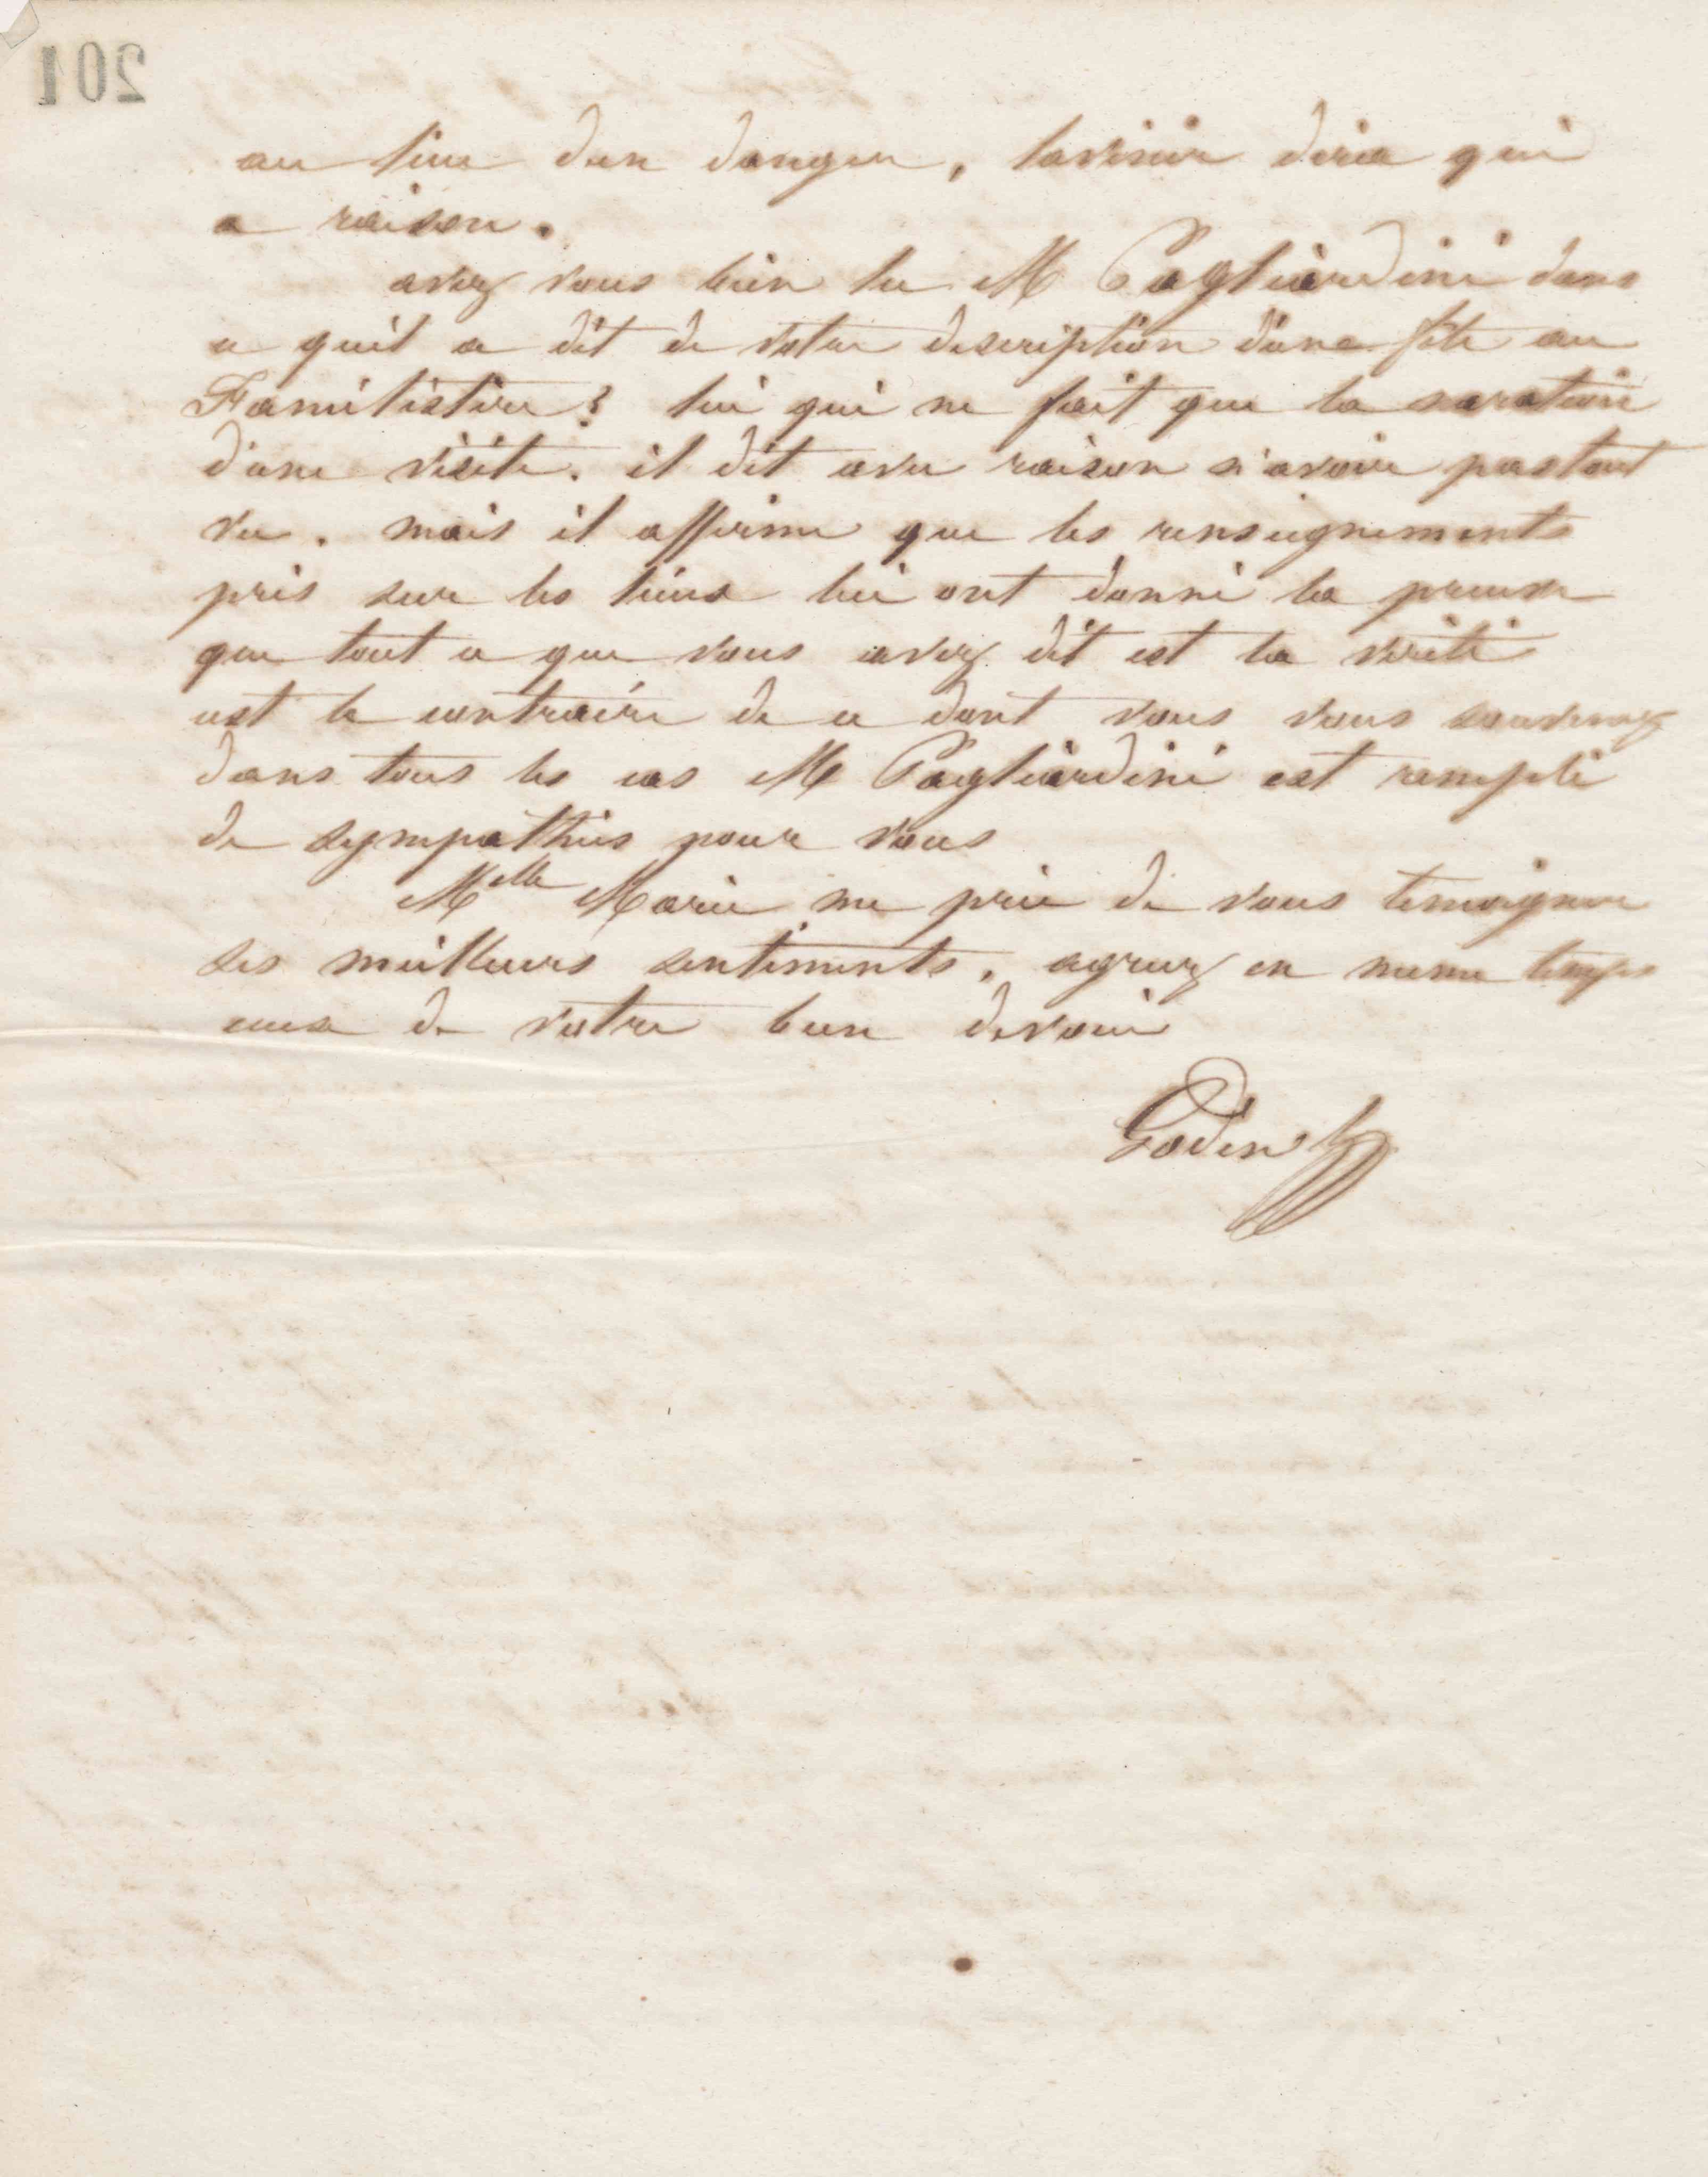 201
au lieu d'un danger, l'avenir dira qui
a raison.
avez vous bien lu M Pagliardini dans
ce qu'il a dit de votre description d'une fête au
Familistère? lui qui ne fait que la naration
d'une visite. il dit avec raison n'avoir pas tout
vu. mais il affirme que les renseignements
pris sur les lieux lui ont donné la preuve
que tout ce que vous avez dit est la vérité
cest le contraire de ce dont vous vous souvenez
dans tous les cas M Pagliardini est rempli
de sympathies pour vous
Melle Marie me prie de vous temoigner
ses meilleurs sentiments. agreez en meme temps
ceux de votre bien dévoué
Godin